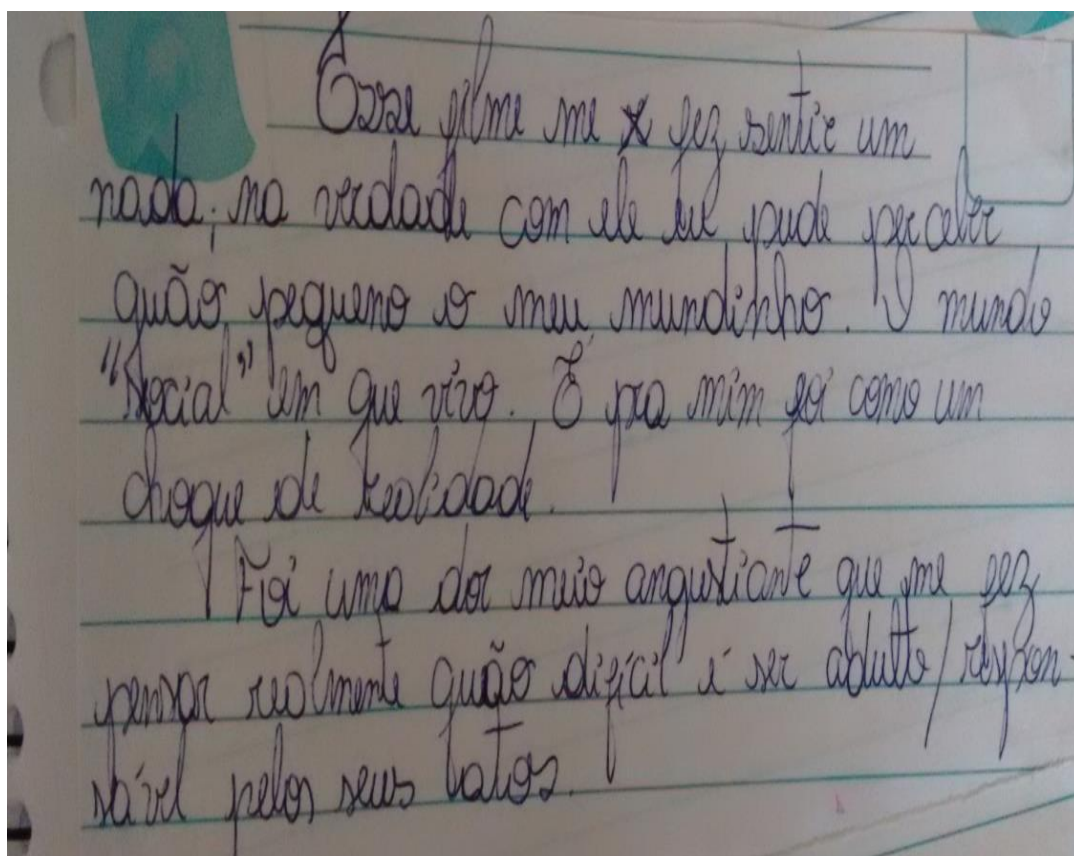 Esse filme me fez sentir um
nada; na verdade com ele eu pude perceber
quão pequeno o meu mundinho. O mundo
"Social" em que vivo. E pra mim foi como um
choque de realidade.
Foi uma dor muio angustiante que me fez
pensar realmente quão difícil é ser adulto/respon-
sável pelos seus atos.